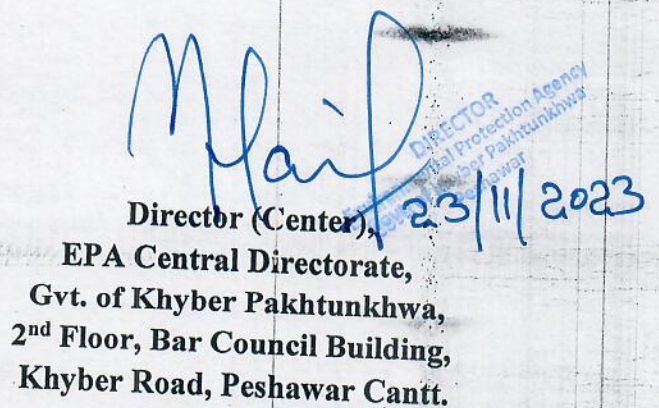 DIRECTOR
Environmental Protection Agency
Khyber Pakhtunkhwa
Peshawar
23/11/2023
Director (Center),
EPA Central Directorate,
Gvt. of Khyber Pakhtunkhwa,
2nd Floor, Bar Council Building,
Khyber Road, Peshawar Cantt.